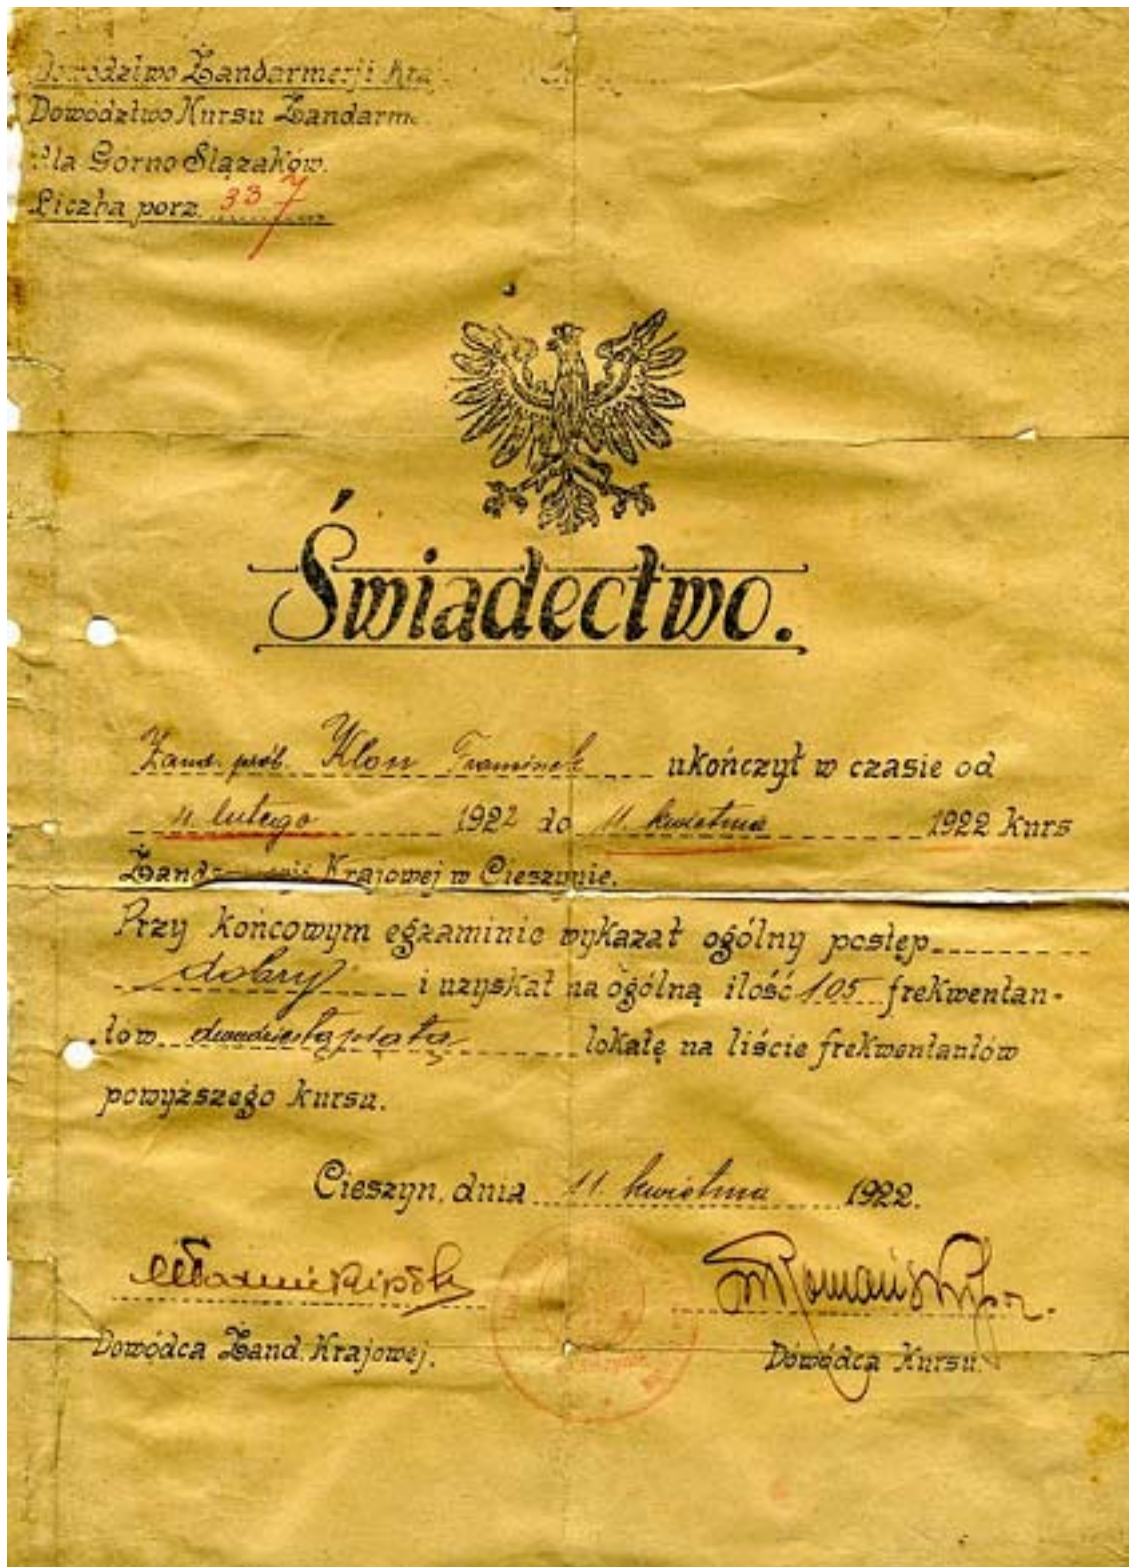 Dowództwo Żandarmerji Kraj
Dowództwo Kursu Żandarm
dla Górno Ślązaków.
Liczba porz. 337
Świadectwo.
Żand. prób. Klon Franciszek ukończył w czasie od
11. lutego 1922 do 11. kwietnia 1922 kurs
Żand Krajowej w Cieszynie.
Przy końcowym egzaminie wykazał ogólny postęp
dobry i uzyskał na ogólną ilość 105 frekwentan-
tów dwudziestą piątą lokatę na liście frekwentantów
powyższego kursu.
Cieszyn, dnia 11. kwietnia 1922.
Dowódca Żand. Krajowej.
Dowódca Kursu.